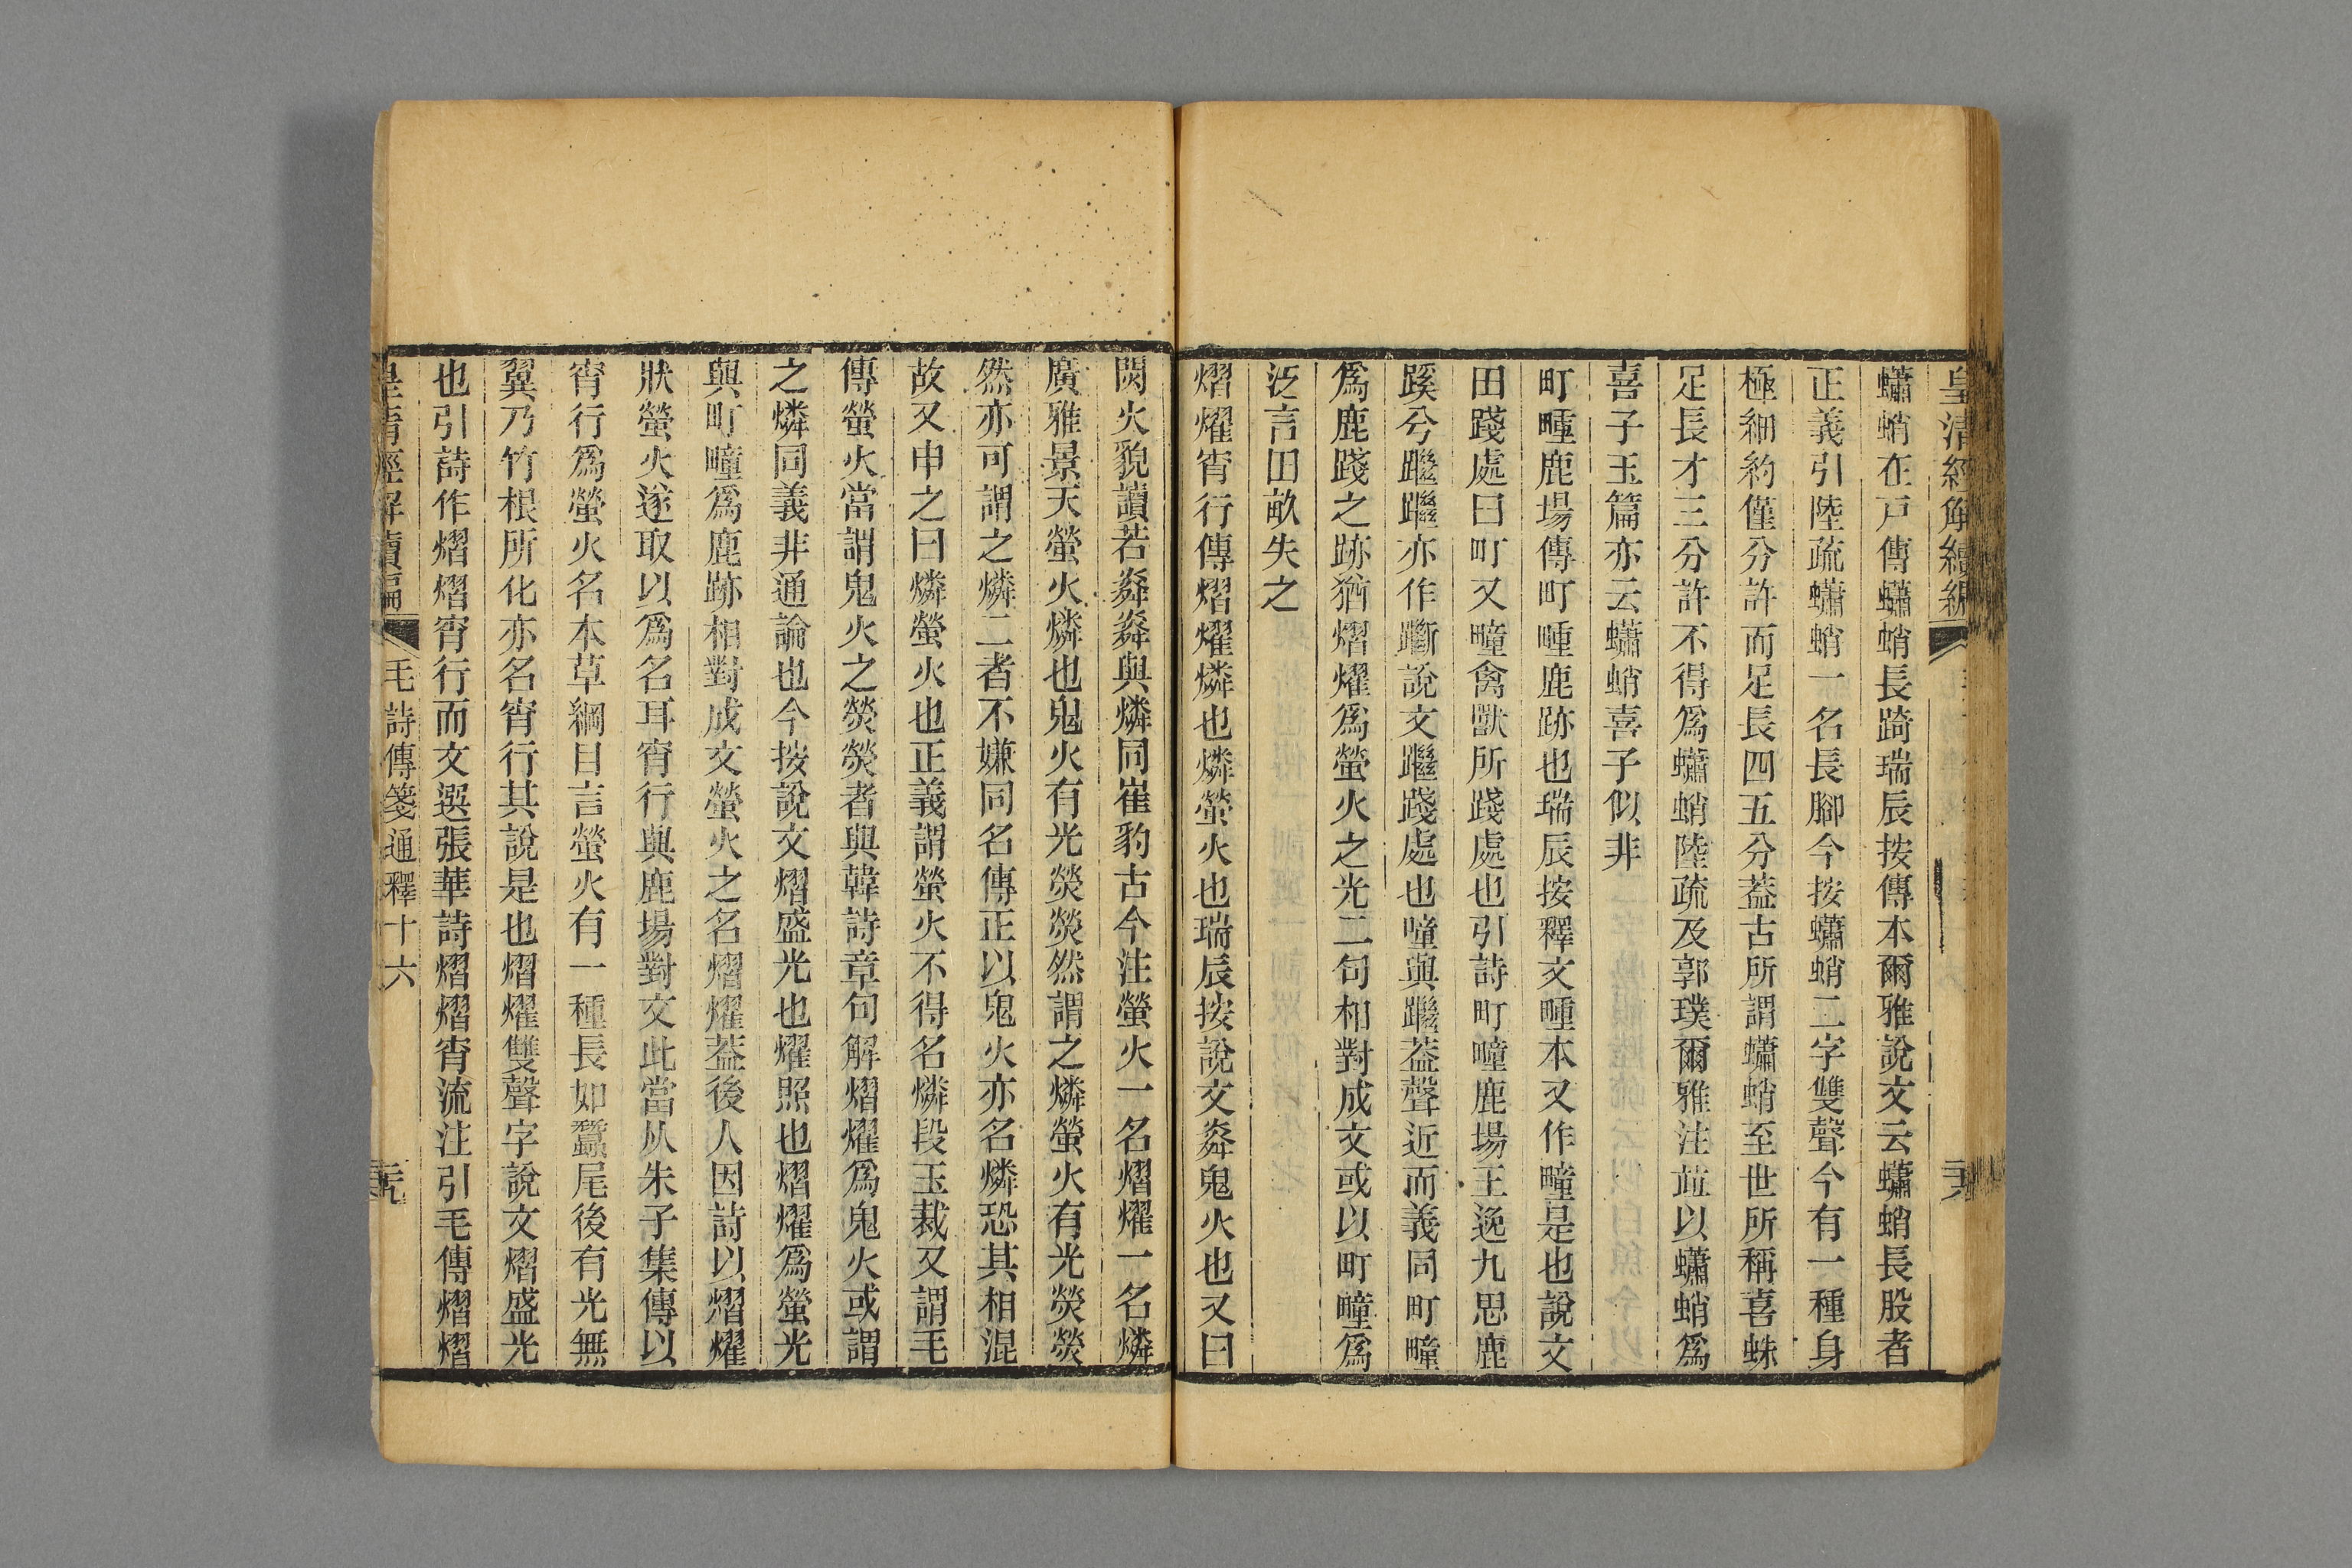 皇清經解續編
蠨蛸在戸傳蠨蛸長踦瑞辰按傳本爾雅說文云蠨蛸長股者
正義引陸疏蠨蛸一名長腳今按蠨蛸二字雙聲今有一種身
極細約僅分許而足長四五分葢古所謂蠨蛸至世所稱喜蛛
足長才三分許不得爲蠨蛸陸疏及郭璞爾雅注竝以蠨蛸爲
喜子玉篇亦云蠨蛸喜子似非
町畽鹿場傳町畽鹿跡也瑞辰按釋文畽本又作疃是也說文
田踐處曰町又疃禽獸所踐處也引詩町疃鹿場王逸九思鹿
蹊兮䠱䠱亦作躖說文䠱踐處也疃與䠱葢聲近而義同町疃
爲鹿踐之跡猶熠燿爲螢火之光二句相對成文或以町疃爲
泛言田畝失之
熠燿宵行傳熠燿燐也燐螢火也瑞辰按說文粦鬼火也又曰
閃火貌讀若粦粦與燐同崔豹古今注螢火一名熠燿一名燐
廣雅景天螢火燐也鬼火有光熒熒然謂之燐螢火有光熒熒
然亦可謂之燐二者不嫌同名傳正以鬼火亦名燐恐其相混
故又申之曰燐螢火也正義謂螢火不得名燐段玉裁又謂毛
傳螢火當謂鬼火之熒熒者與韓詩章句解熠燿爲鬼火或謂
之燐同義非通論也今按說文熠盛光也燿照也熠燿爲螢光
與町疃爲鹿跡相對成文螢火之名熠燿葢後人因詩以熠燿
狀螢火遂取以爲名耳宵行與鹿場對文此當从朱子集傳以
宵行爲螢火名本草綱目言螢火有一種長如蠶尾後有光無
翼乃竹根所化亦名宵行其說是也熠燿雙聲字說文熠盛光
也引詩作熠熠宵行而文選張華詩熠熠宵流注引毛傳熠熠
皇清經解續編 毛詩傳箋通釋十六 元